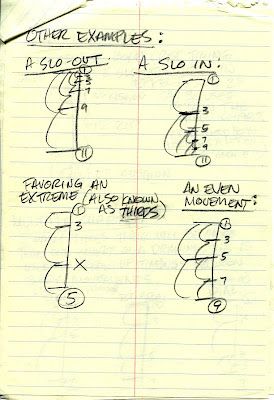 OTHER EXAMPLES:
A SLO-OUT:
1
3
5
7
9
11
A SLO IN:
1
3
5
7
9
11
FAVORING AN
EXTREME (ALSO KNOWN
AS THIRDS)
1
3
X
5
AN EVEN
MOVEMENT:
1
3
5
7
9